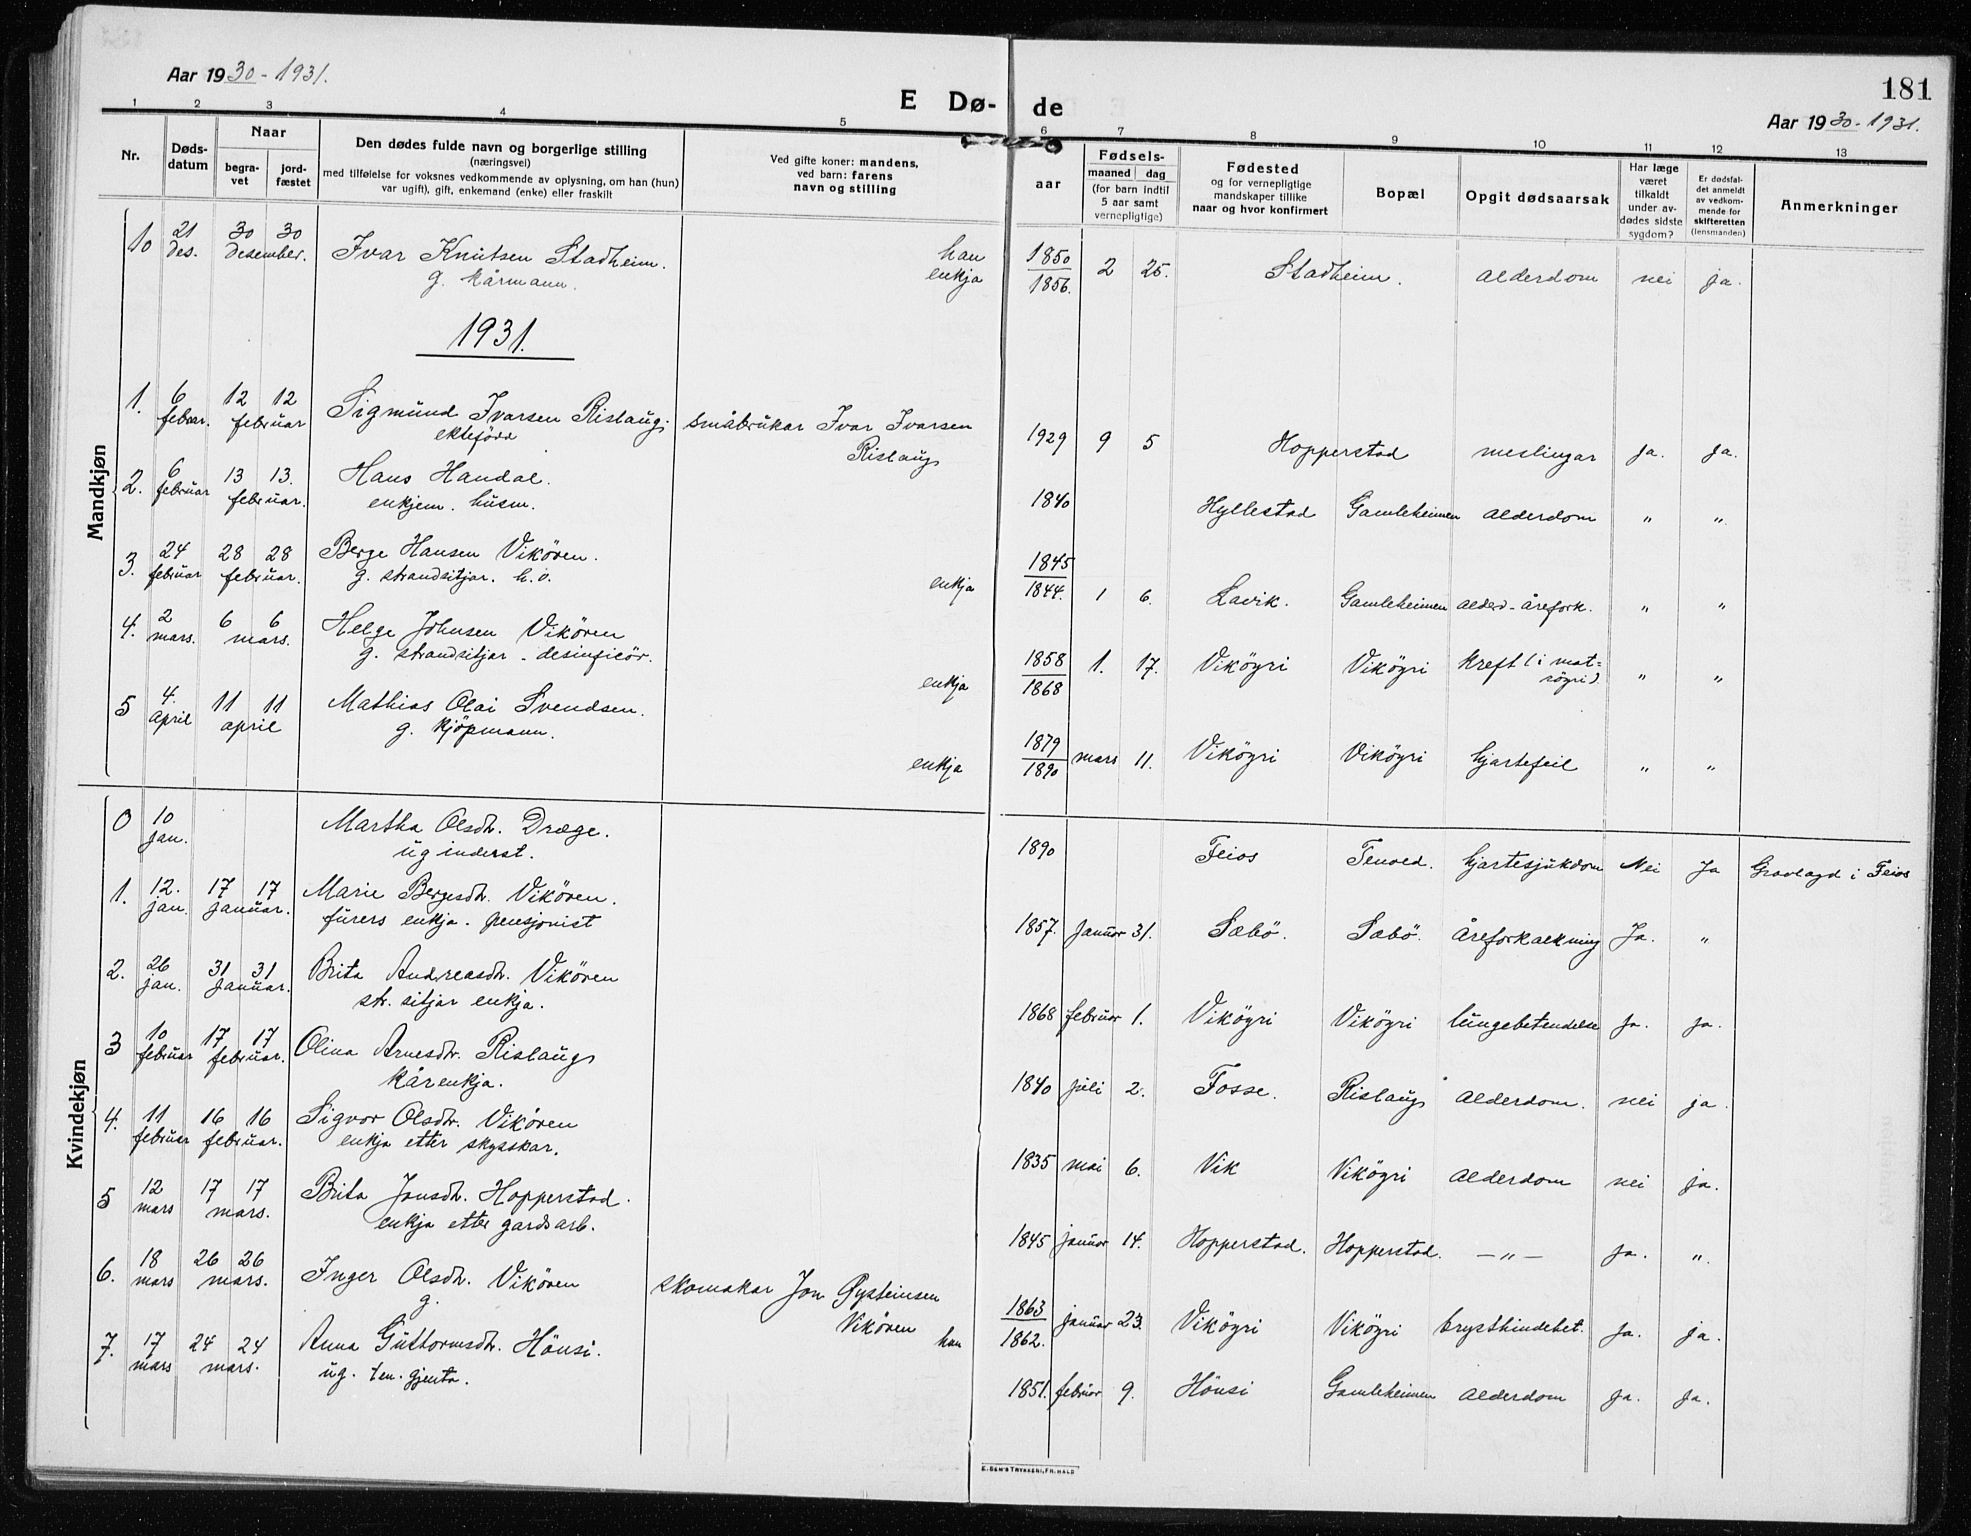 Aar 1930 - 1931.
181
E Dø- de
Aar 1930 - 1931.
1 2 3 4 5 6 7 8 9 10 11 12 13
Nr.
Døds-
datum
Naar
begra-
vet
jord-
fæstet
Den dødes fulde navn og borgerlige stilling
(næringsvei)
med tilføielse for voksnes vedkommende av oplysning, om han (hun)
var ugift), gift, enkemand (enke) eller fraskilt
Ved gifte koner: mandens,
ved barn: farens
navn og stilling
aar
Fødsels-
maaned dag
(for barn indtil
5 aar samt
vernepligtige)
Fødested
og for vernepligtige
mandskaper tillike
naar og hvor konfirmert
Bopæl
Opgit dødsaarsak
Har læge
været
tilkaldt
under av-
dødes sidste
sygdom?
Er dødsfal-
det anmeldt
av vedkom-
mende for
skifteretten
(lensmanden)
Anmerkninger
Mandkjøn
10 21 30 30 Ivar Knutsen Stadheim. han 1850 2 25. Stadheim. alderdom nei ja.
des. desember. g. kårmann. enkja 1856.
1931.
1. 6 12 12 Sigmund Ivarsen Rislaug; småbrukar Ivar Ivarsen 1929 9 5 Hopperstad meslingar ja. ja.
februar februar ektefödd Rislaug
2. 6 13 13. Hans Handal. 1840 Hyllestad Gamleheimen alderdom " "
februar februar. enkjem. husm.
3. 24 28 28 Berge Hansen Vikören. 1845 1 6. Lavik. Gamleheimen alderd-årefork. " "
februar februar. g. strandsitjar. h.o. enkja 1844.
4. 2 6 6 Helge Johnsen Vikören 1858 1. 17. Vikögri Vikögri kreft (i mat=
mars. mars. g. strandsitjar - desinficör. enkja 1868 sögri) " "
5 4. 11 11 Mathias Olai Svendsen. 1879 mars 11. Vikögri Vikögri hjartefeil " "
april april g. kjöpmann. enkja 1890
Kvindekjøn
0 10 Martha Olsdtr. Dræge. 1890 Feios Tenoed. hjartesjukdom Nei Ja Gravlagd i Feios
jan. ug inderst.
1. 12. 17 17 Marie Bergesdtr. Vikören. 1857. januar 31. Sæbö. Sæbö. åreforkalkning Ja. "
jan. januar. furers enkja. pensjonist
2. 26 31 31 Brita Andreasdtr. Vikören 1868 februar 1. Vikögri Vikögri lungebetendelse ja. ja.
jan. januar. str. sitjar enkja.
3 10 17 17 Olina Arnesdtr. Rislaug 1840 juli 2. Fosse. Rislaug alderdom. nei ja.
februar februar. kårenkja.
4. 11 16 16 Sigvor Olsdtr. Vikören 1835 mai 6. Vik Vikögri alderdom nei ja.
februar februar. enkja etter skysskar.
5 12 17 17 Brita Jonsdtr. Hopperstad. 1845 januar 14. Hopperstad. Hopperstad. —"— ja. ".
mars mars. enkja etter gardsarb.
6. 18 26 26 Inger Olsdtr. Vikören skomakar Jon Øysteinsen 1863 januar 23. Vikögri Vikögri brysthindebet. ja. ja.
mars mars. g. Vikören han 1862.
7. 17 24 24 Anna Guttormsdtr. Hönsi. 1851. februar 9. Hönsi Gamleheimen alderdom ja. ja.
mars mars. ug. ten. gjenta.
E. SEM'S TRYKKERI, FR. HALD